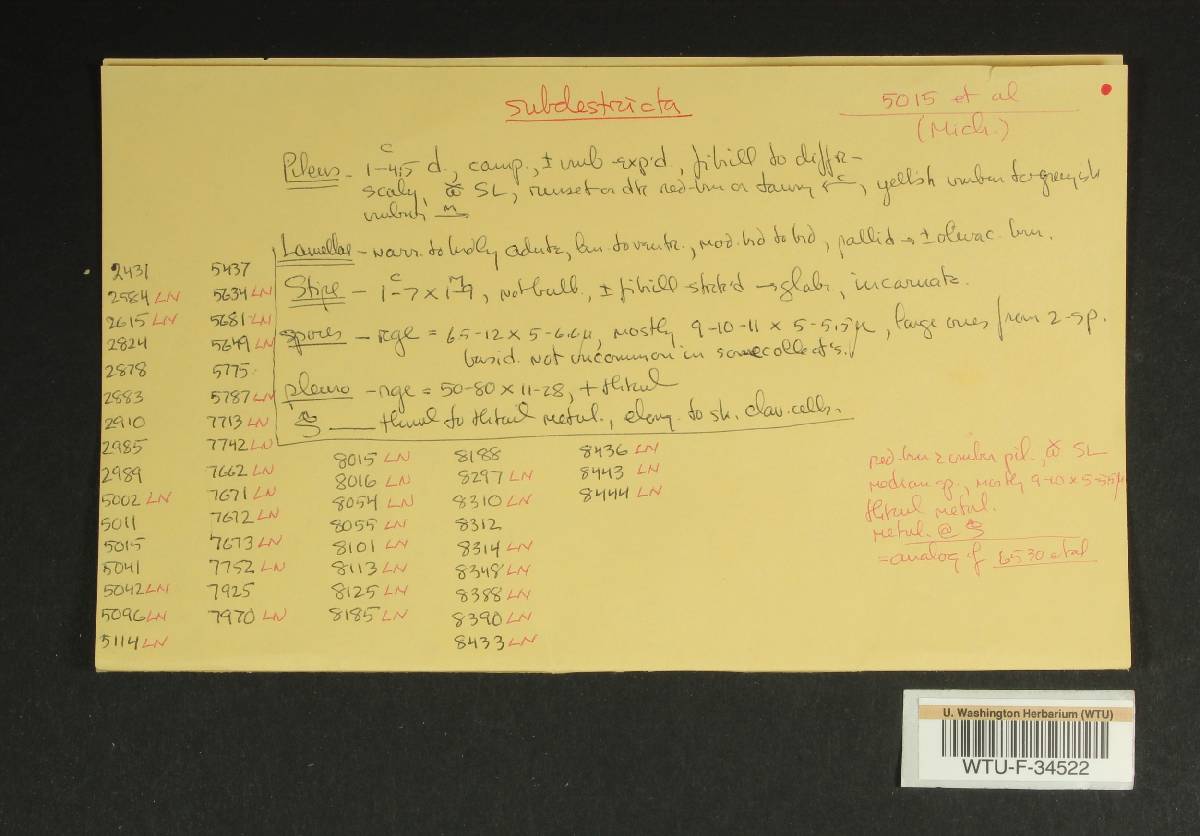 subdestricta
5015 et al
(Mich.)
Pileus - 1-4.5 d., camp., ± umb. exp'd, fibrill to diffr-
scaly, @ SL, russet or dk red-brn or tawny, yellish umber to greyish
umber
Lamellae - narr. to bdly adnate, to ventr., mod. bd to bd, pallid → ± olivac. brn.
Stipe - 1-7 x 1-9, not bulb., ± fibrill striate'd → glabr, incarnate.
Spores - rge = 6.5-12 x 5-6.6µ, mostly 9-10-11 x 5-5.5µ, large ones from 2-sp.
basid. not uncommon in some collect's.
pleuro - rge = 50-80 x 11-28, + thkwl
thnwl to thkwl metul., elong. to sh. clav. cells.
2431 5437
2584 LN 5634 LN
2615 LN 5681 LN
2824 5649 LN
2878 5775
2883 5787 LN
2910 7713 LN
2985 7742 LN
2989 7662 LN
5002 LN 7671 LN
5011 7672 LN
5015 7673 LN
5041 7752 LN
5042 LN 7925
5096 LN 7970 LN
5114 LN
8015 LN 8188 8436 LN
8016 LN 8297 LN 8443 LN
8054 LN 8310 LN 8444 LN
8055 LN 8312
8101 LN 8314 LN
8113 LN 8348 LN
8125 LN 8388 LN
8185 LN 8390 LN
8433 LN
red-brn umber pil., @ SL
median sp., mostly 9-10 x 5-5.5µ
thkwl metul.
metul. @
= analog of 6530 et al
U. Washington Herbarium (WTU)
WTU-F-34522